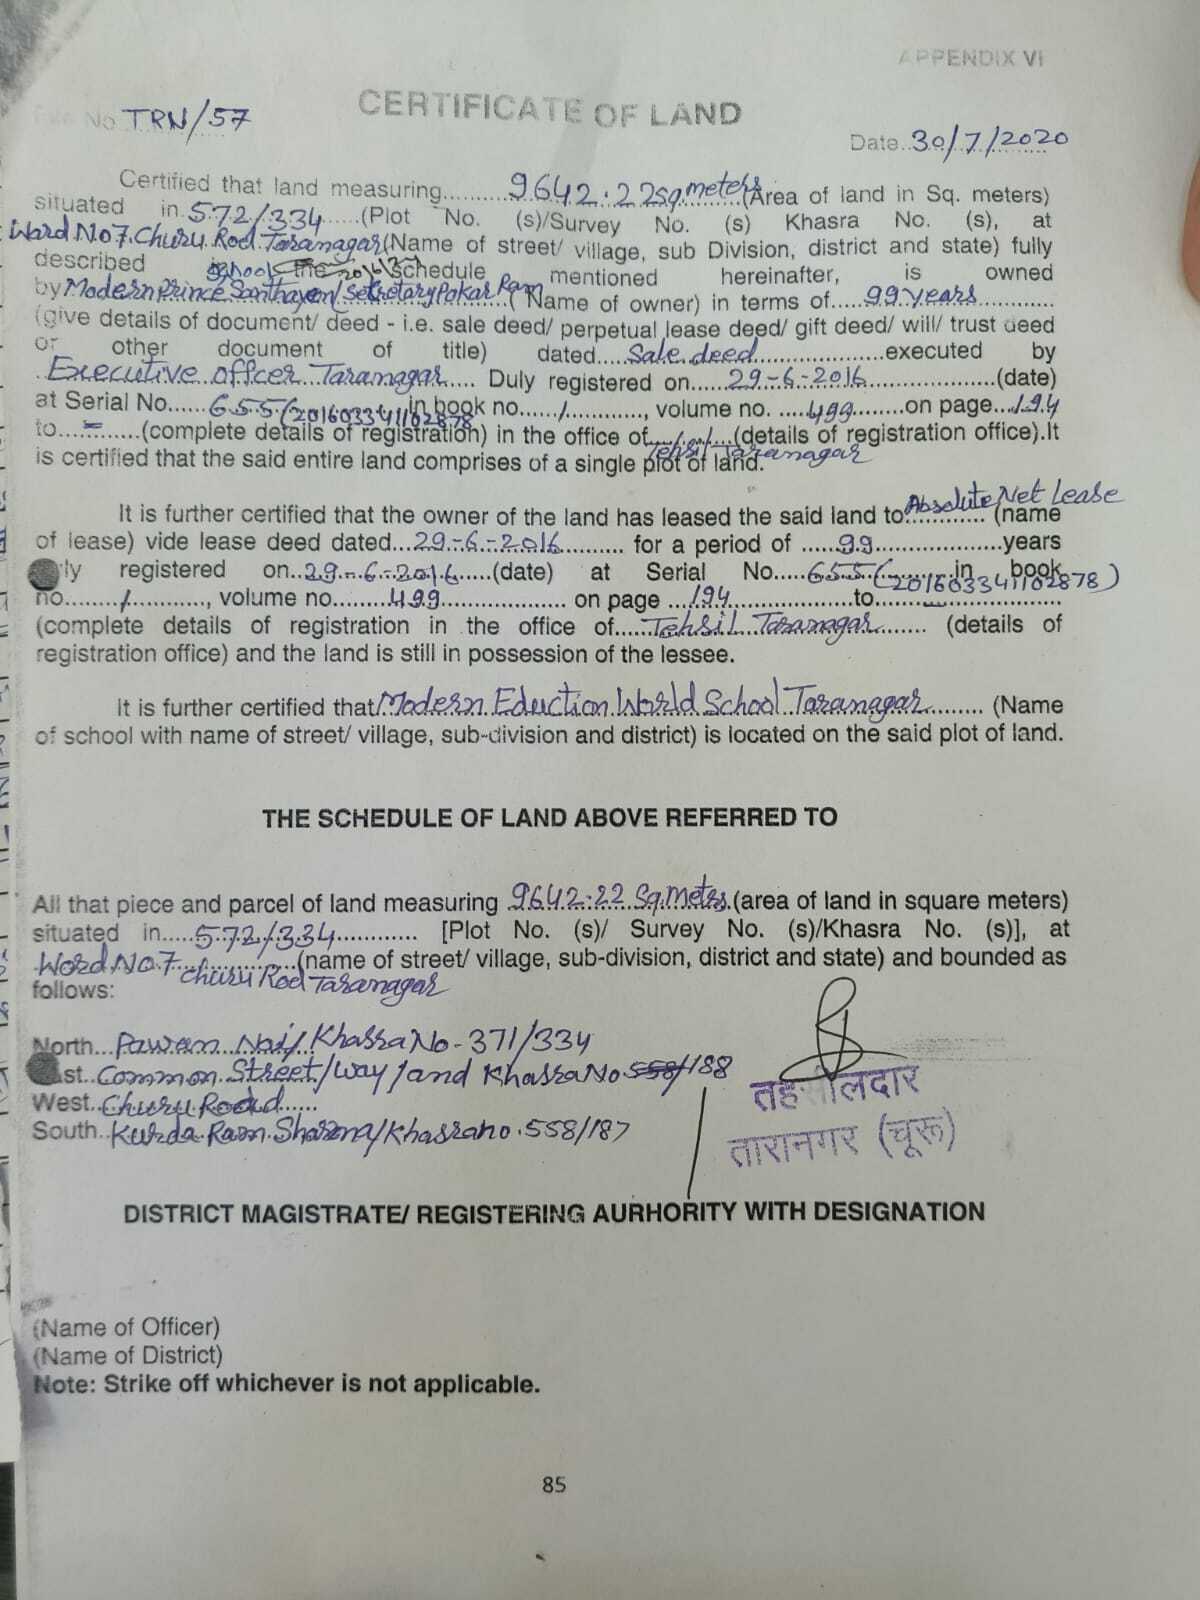 APPENDIX VI
CERTIFICATE OF LAND
No TRN/57
Date..30/7/2020
Certified that land measuring..........9642.22sq.meters.(Area of land in Sq. meters)
situated in.572/334......(Plot No. (s)/Survey No. (s) Khasra No. (s), at
Ward No7.Churu Rod.Taranagar(Name of street/ village, sub Division, district and state) fully
described school the schedule mentioned hereinafter, is owned
by Modern Prince /Secretary Pokar Ram (Name of owner) in terms of.....99 years............
(give details of document/ deed - i.e. sale deed/ perpetual lease deed/ gift deed/ will/ trust deed
or other document of title) dated.....Sale deed..................executed by
Executive offcer Taranagar..... Duly registered on......29-6-2016..................(date)
at Serial No......655(201603341102878) in book no....../............, volume no. .....499.........on page...194
to....-.......(complete details of registration) in the office of Tehsil Taranagar (details of registration office).It
is certified that the said entire land comprises of a single plot of land.
It is further certified that the owner of the land has leased the said land to Absolute Net Lease (name
of lease) vide lease deed dated...29-6-2016.......... for a period of ......99...................years
ly registered on..29-6-2016......(date) at Serial No.....655(201603341102878) in book
no......../............, volume no........499.................. on page ...194..................to..............................
(complete details of registration in the office of.....Tehsil Taranagar........ (details of
registration office) and the land is still in possession of the lessee.
It is further certified that Modern Eduction World School Taranagar........ (Name
of school with name of street/ village, sub-division and district) is located on the said plot of land.
THE SCHEDULE OF LAND ABOVE REFERRED TO
All that piece and parcel of land measuring 9642.22 Sq.Meters.(area of land in square meters)
situated in.....572/334............ [Plot No. (s)/ Survey No. (s)/Khasra No. (s)], at
Word No7 Churu Rod Taranagar (name of street/ village, sub-division, district and state) and bounded as
follows:
North...Pawan Nai/Khasra No-371/334
ast..Common Street/way/and Khasra No 558/188
West..Churu Road......
South..Kurda Ram Sharma/Khasra no.558/187
तहसीलदार
तारानगर (चूरू)
DISTRICT MAGISTRATE/ REGISTERING AURHORITY WITH DESIGNATION
(Name of Officer)
(Name of District)
Note: Strike off whichever is not applicable.
85